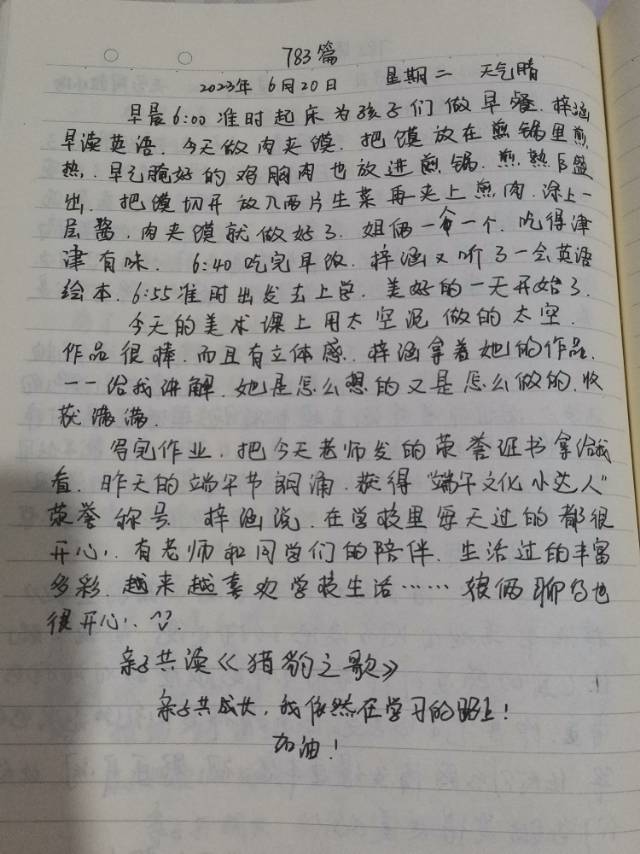 783篇
2023年6月20日 星期二 天气晴
早晨6:00准时起床为孩子们做早餐.梓涵
早读英语.今天做肉夹馍.把馍放在煎锅里煎
热.早已腌好的鸡胸肉也放进煎锅.煎熟后盛
出.把馍切开放入两片生菜再夹上煎肉.涂上一
层酱.肉夹馍就做好了.姐俩一人一个.吃得津
津有味. 6:40吃完早饭.梓涵又听了一会英语
绘本.6:55准时出发去上学.美好的一天开始了.
今天的美术课上用太空泥做的太空.
作品很棒.而且有立体感.梓涵拿着她的作品.
一一给我讲解.她是怎么想的又是怎么做的.收
获满满.
写完作业.把今天老师发的荣誉证书拿给我
看.昨天的端午节朗诵.获得“端午文化小达人”
荣誉称号 梓涵说.在学校里每天过的都很
开心..有老师和同学们的陪伴.生活过的丰富
多彩.越来越喜欢学校生活……娘俩聊的也
很开心..
亲子共读《猎豹之歌》
亲子共成长,我依然在学习的路上!
加油!